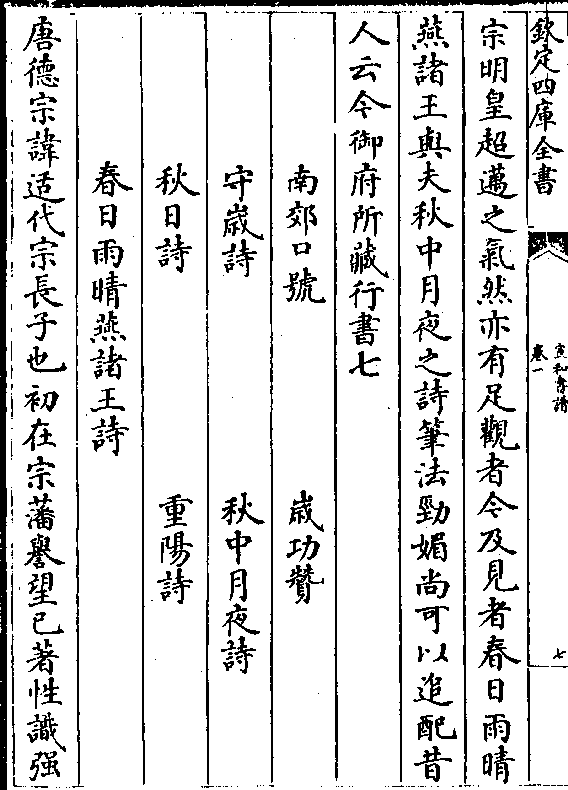 欽定四庫全書
宣和書譜
卷一
七
宗明皇超邁之氣然亦有足觀者今及見者春日雨晴
燕諸王與夫秋中月夜之詩筆法勁媚尚可以追配昔
人云今御府所藏行書七
南郊口號　歲功贊
守歲詩　秋中月夜詩
秋日詩　重陽詩
春日雨晴燕諸王詩
唐德宗諱适代宗長子也初在宗藩譽望已著性識强